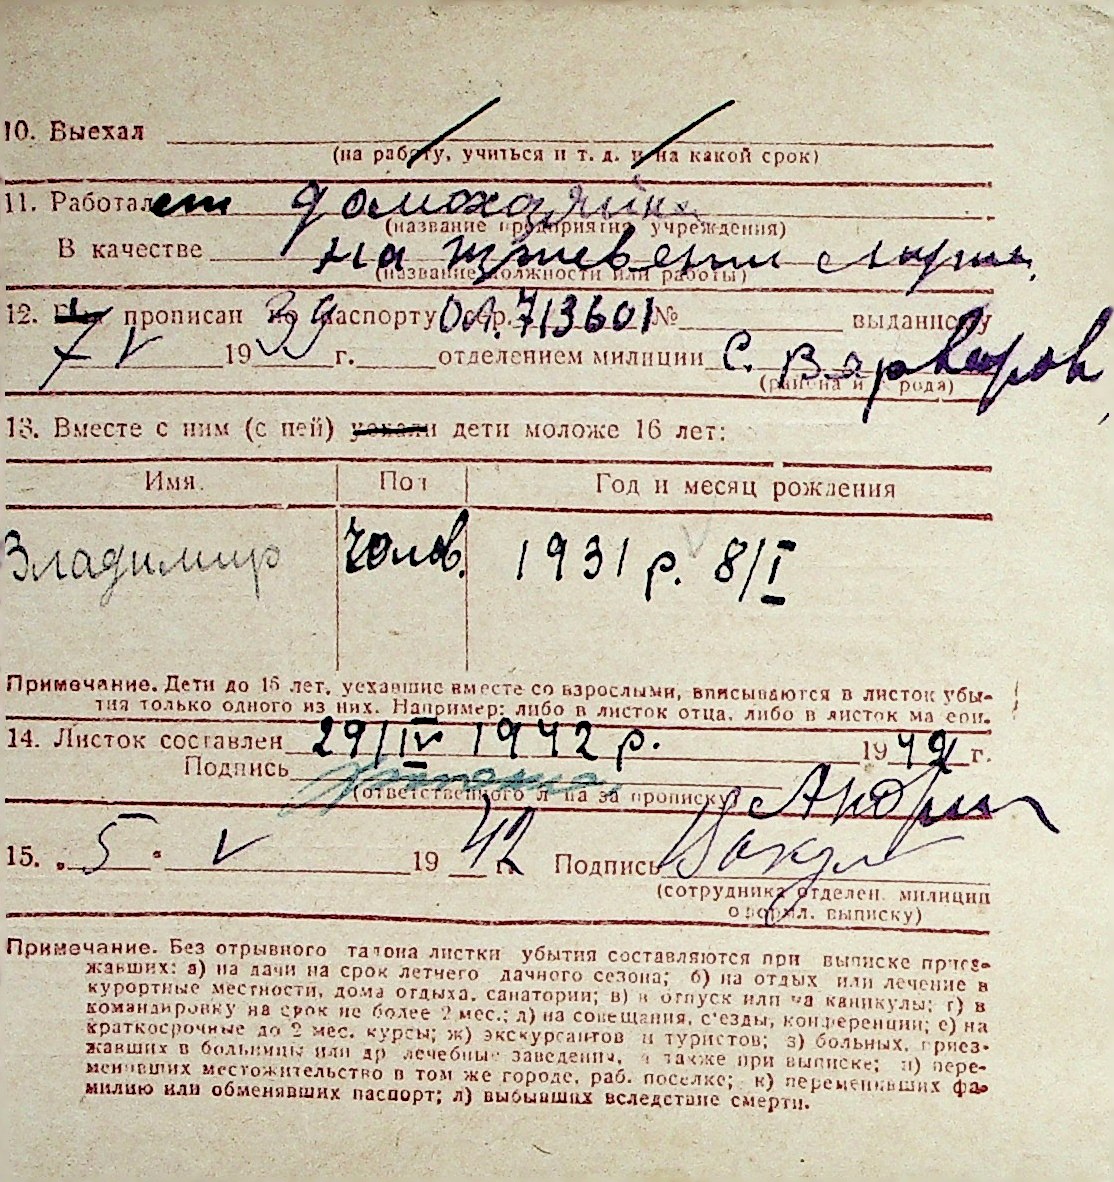 10. Выехал
(на работу, учиться и т. д. и на какой срок)
11. Работает домохозяйка
(название предприятия учреждения)
В качестве на
(название должности или работы)
12. прописан по паспорту ОА. 713601 № выданному
7 V 1939 г. отделением милиции С.
(района и города)
13. Вместе с ним (с ней) уехали дети моложе 16 лет:
Имя. Пол Год и месяц рождения
Владимир чолов. 1931 р. 8/I
Примечание. Дети до 16 лет, уехавшие вместе со взрослыми, вписываются в листок убы-
тия только одного из них. Например: либо в листок отца, либо в листок матери.
14. Листок составлен 29/IV 1942 р. 1942 г.
Подпись
(ответственного лица за прописку)
15. „5“ V 1942 г. Подпись
(сотрудника отделен. милиции
оформл. выписку)
Примечание. Без отрывного талона листки убытия составляются при выписке приез-
жавших: а) на дачи на срок летнего дачного сезона; б) на отдых или лечение в
курортные местности, дома отдыха, санатории; в) в отпуск или на каникулы; г) в
командировку на срок не более 2 мес.; д) на совещания, с'езды, конференции; е) на
краткосрочные до 2 мес. курсы; ж) экскурсантов и туристов; з) больных, приез-
жавших в больницы или др лечебные заведения, а также при выписке; и) пере-
менивших местожительство в том же городе, раб. поселке; к) переменивших фа-
милию или обменявших паспорт; л) выбывших вследствие смерти.